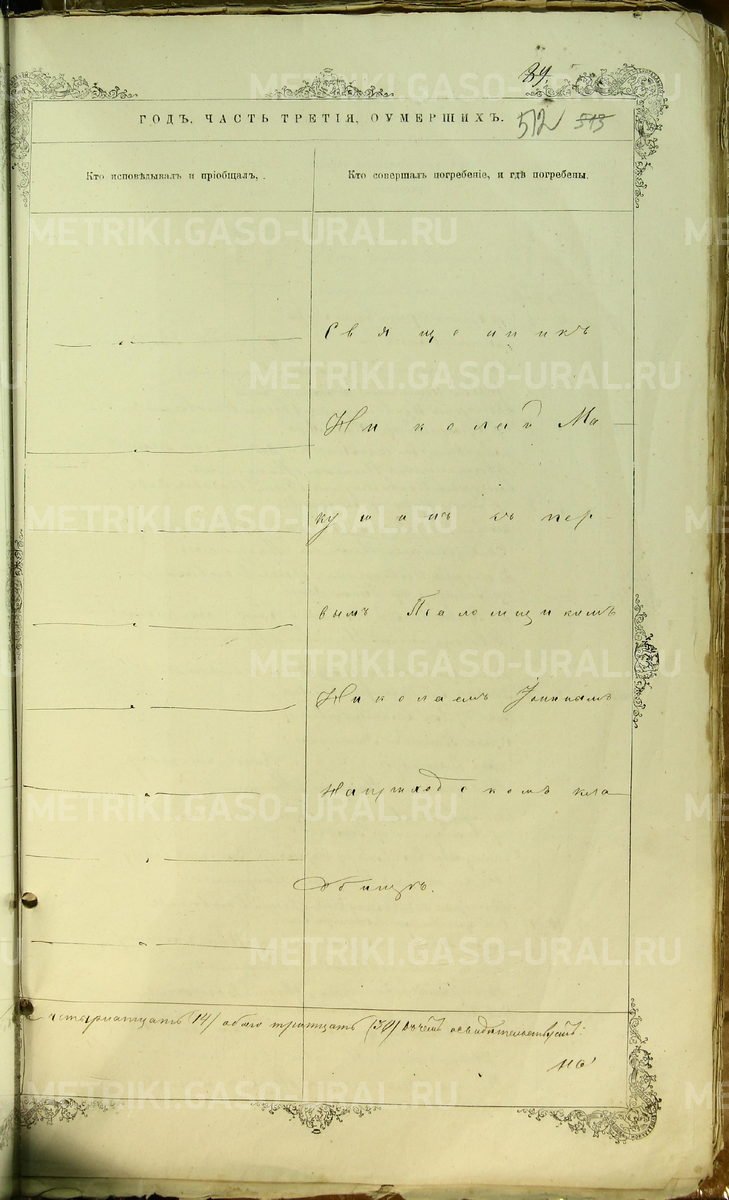 89.
ГОДЪ, ЧАСТЬ ТРЕТІЯ, О УМЕРШИХЪ. 512 513
Кто исповѣдывалъ и пріобщалъ,
Кто совершалъ погребеніе, и гдѣ погребены.
Священникъ
Николай Ма-
съ пер-
вымъ Псаломщикомъ
Николаемъ
На приходскомъ кла-
дбищѣ.
14) обоего тритцать (30) въ чемъ свидѣтельствуетъ:
METRIKI.GASO-URAL.RU